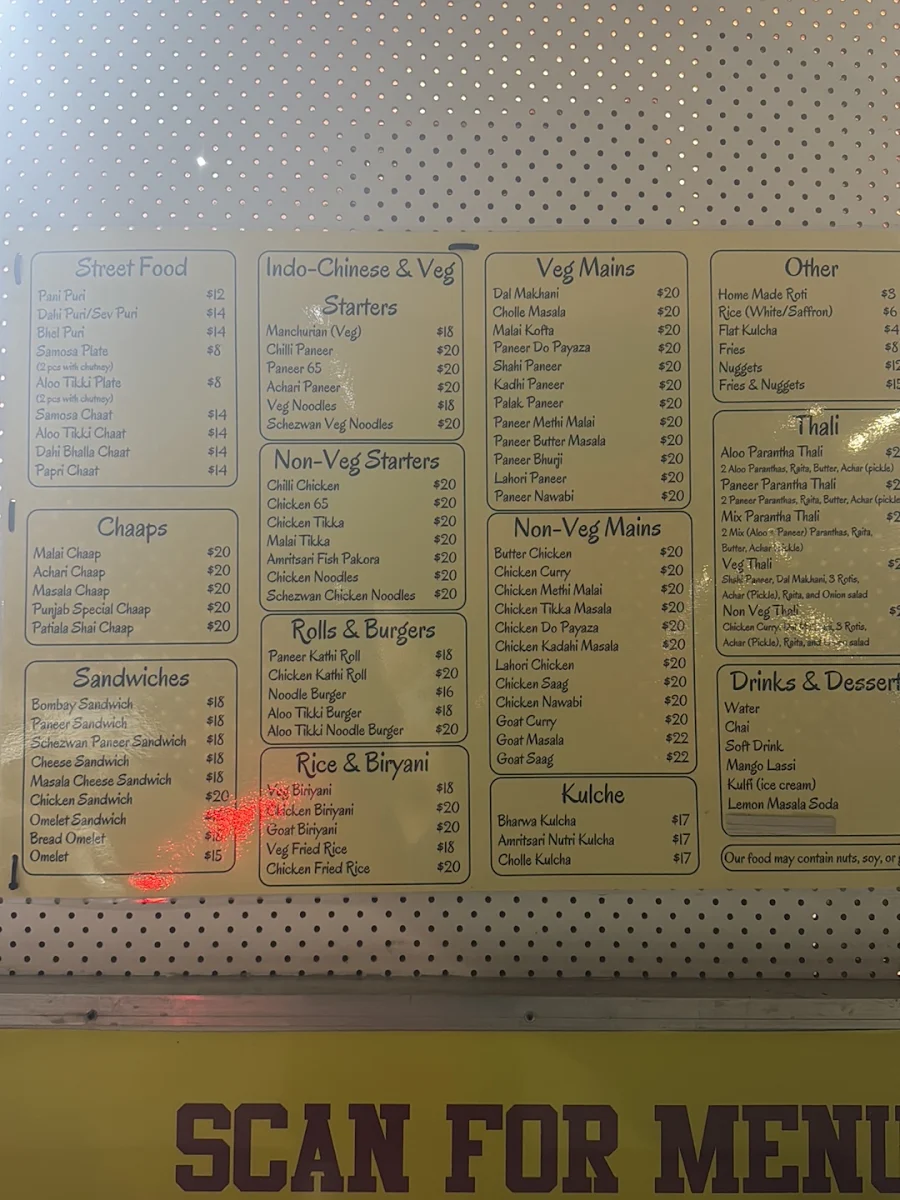 Street Food
Pani Puri $12
Dahi Puri/Sev Puri $14
Bhel Puri $14
Samosa Plate $8
(2 pcs with chutney)
Aloo Tikki Plate $8
(2 pcs with chutney)
Samosa Chaat $14
Aloo Tikki Chaat $14
Dahi Bhalla Chaat $14
Papri Chaat $14
Chaaps
Malai Chaap $20
Achari Chaap $20
Masala Chaap $20
Punjab Special Chaap $20
Patiala Shai Chaap $20
Sandwiches
Bombay Sandwich $18
Paneer Sandwich $18
Schezwan Paneer Sandwich $18
Cheese Sandwich $18
Masala Cheese Sandwich $18
Chicken Sandwich $20
Omelet Sandwich
Bread Omelet
Omelet $15
Indo-Chinese & Veg
Starters
Manchurian (Veg) $18
Chilli Paneer $20
Paneer 65 $20
Achari Paneer $20
Veg Noodles $18
Schezwan Veg Noodles $20
Non-Veg Starters
Chilli Chicken $20
Chicken 65 $20
Chicken Tikka $20
Malai Tikka $20
Amritsari Fish Pakora $20
Chicken Noodles $20
Schezwan Chicken Noodles $20
Rolls & Burgers
Paneer Kathi Roll $18
Chicken Kathi Roll $20
Noodle Burger $16
Aloo Tikki Burger $18
Aloo Tikki Noodle Burger $20
Rice & Biryani
Veg Biriyani $18
Chicken Biriyani $20
Goat Biriyani $20
Veg Fried Rice $18
Chicken Fried Rice $20
Veg Mains
Dal Makhani $20
Cholle Masala $20
Malai Kofta $20
Paneer Do Payaza $20
Shahi Paneer $20
Kadhi Paneer $20
Palak Paneer $20
Paneer Methi Malai $20
Paneer Butter Masala $20
Paneer Bhurji $20
Lahori Paneer $20
Paneer Nawabi $20
Non-Veg Mains
Butter Chicken $20
Chicken Curry $20
Chicken Methi Malai $20
Chicken Tikka Masala $20
Chicken Do Payaza $20
Chicken Kadahi Masala $20
Lahori Chicken $20
Chicken Saag $20
Chicken Nawabi $20
Goat Curry $20
Goat Masala $22
Goat Saag $22
Kulche
Bharwa Kulcha $17
Amritsari Nutri Kulcha $17
Cholle Kulcha $17
Other
Home Made Roti $3
Rice (White/Saffron) $6
Flat Kulcha $4
Fries $8
Nuggets
Fries & Nuggets
Thali
Aloo Parantha Thali
2 Aloo Paranthas, Raita, Butter, Achar (pickle)
Paneer Parantha Thali
2 Paneer Paranthas, Raita, Butter, Achar (pickle
Mix Parantha Thali
2 Mix (Aloo + Paneer) Paranthas, Raita,
Butter, Achar (pickle)
Veg Thali
Shahi Paneer, Dal Makhani, 3 Rotis,
Achar (Pickle), Raita, and Onion salad
Non Veg Thali
Chicken Curry, 3 Rotis,
Achar (Pickle), Raita, and salad
Drinks & Dessert
Water
Chai
Soft Drink
Mango Lassi
Kulfi (ice cream)
Lemon Masala Soda
Our food may contain nuts, soy, or
SCAN FOR MENU